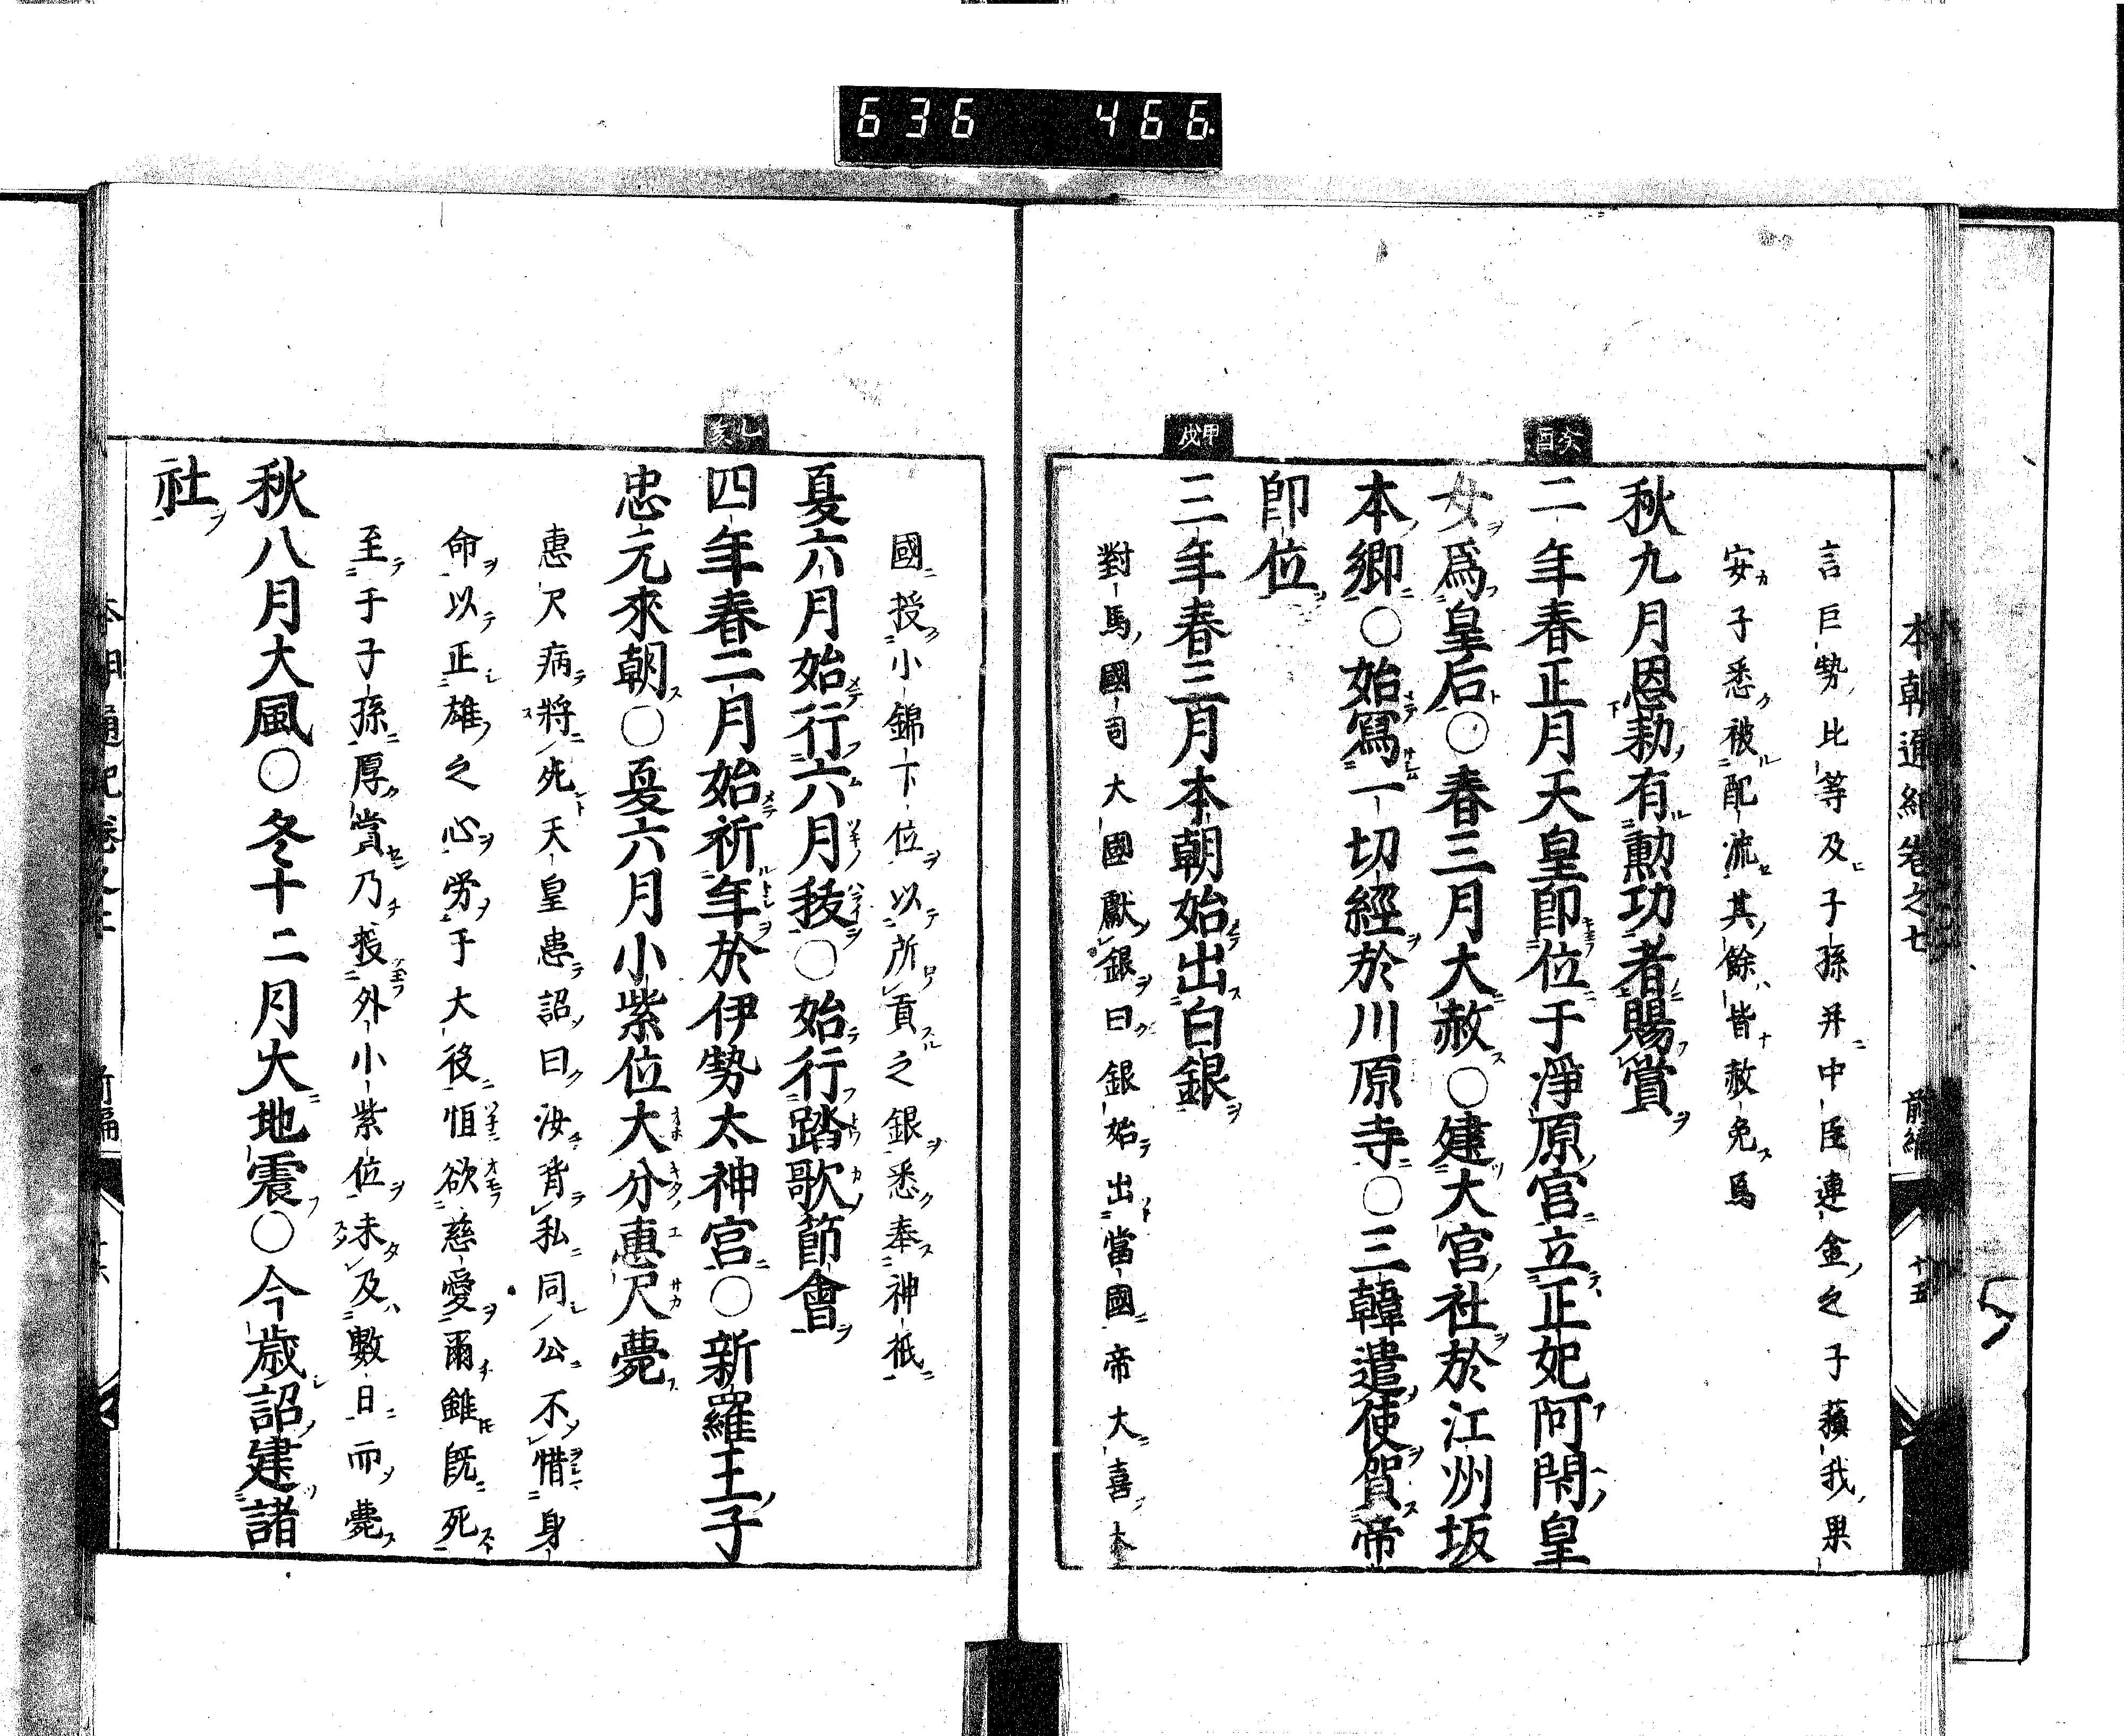 636 466
本朝通紀卷之七 前編 十五
言巨勢比等及子孫并中臣連金之子蘓我果
安子悉被配流其餘皆赦免焉
秋九月恩勅有勲功者賜賞
癸酉
二年春正月天皇即位于淨原宮立正妃阿閇皇
女爲皇后○春三月大赦○建大宮社於江州坂
本郷○始寫一切經於川原寺○三韓遣使賀帝
即位
甲戌
三年春三月本朝始出白銀
對馬國司大國獻銀曰銀始出當國帝大喜大
國授小錦下位以所貢之銀悉奉神祇
夏六月始行六月祓○始行踏歌節會
乙亥
四年春二月始祈年於伊勢太神宮○新羅王子
忠元來朝○夏六月小紫位大分惠尺薨
惠尺病將死天皇患詔曰汝背私同公不惜身
命以正雄之心労于大役恒欲慈愛爾雖既死
至于子孫厚賞乃授外小紫位未及數日而薨
秋八月大風○冬十二月大地震○今歳詔建諸
社